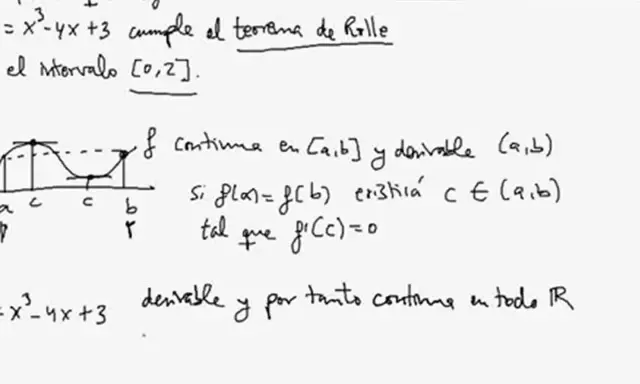 = x³-4x+3 cumple el teorema de Rolle
el intervalo [0,2].
f continua en [a,b] y derivable (a,b)
si f(a)=f(b) existirá c ∈ (a,b)
a c c b
tal que f'(c)=0
= x³-4x+3 derivable y por tanto continua en todo ℝ